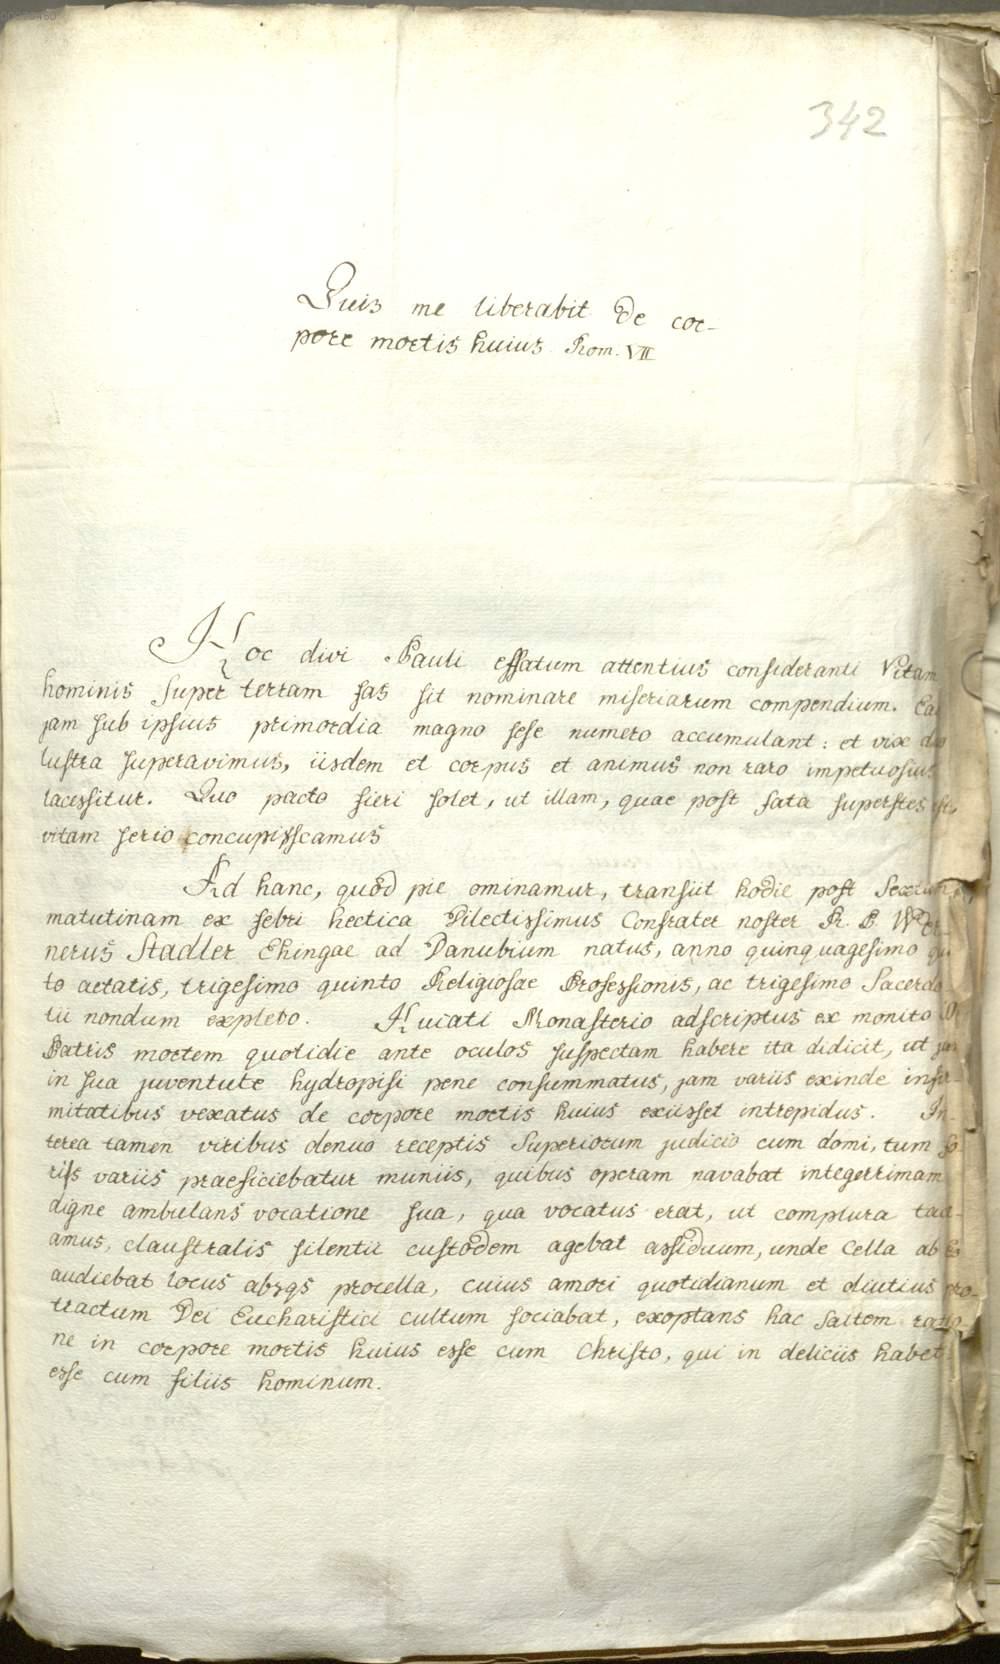 342
Quis me liberabit de cor-
pore mortis huius Rom. VII
Hoc divi Pauli effatum attentius consideranti Vitam
hominis super terram fas sit nominare miseriarum compendium. Ea
jam sub ipsius primordia magno sese numero accumulant: et vix duo
lustra superavimus, iisdem et corpus et animus non raro impetuosius
lacessitur. Quo pacto fieri solet, ut illam, quae post fata superstes est,
vitam serio concupisscamus
Ad hanc, quod pie ominamur, transiit hodie post Sextam
matutinam ex febri hectica Dilectissimus Confrater noster R. P. Wer-
nerus Stadler Ehingae ad Danubium natus, anno quinquagesimo
to aetatis, trigesimo quinto Religiosae Professionis, ac trigesimo Sacerdo
tii nondum expleto. Hujati Monasterio adscriptus ex monito
Patris mortem quotidie ante oculos suspectam habere ita didicit, ut jam
in sua juventute hydropisi pene consummatus, jam variis exinde infir-
mitatibus vexatus de corpore mortis huius exiisset intrepidus. In
terea tamen viribus denuo receptis Superiorum judicio cum domi, tum fo-
ris variis praeficiebatur muniis, quibus operam navabat integerrimam
digne ambulans vocatione sua, qua vocatus erat, ut complura tace-
amus, claustralis silentii custodem agebat assiduum, unde Cella ab Eo
audiebat locus absqs procella, cuius amori quotidianum et diutius pro-
tractum Dei Eucharistici cultum sociabat, exoptans hac saltem ratio-
ne in corpore mortis huius esse cum Christo, qui in deliciis habet
esse cum filiis hominum.